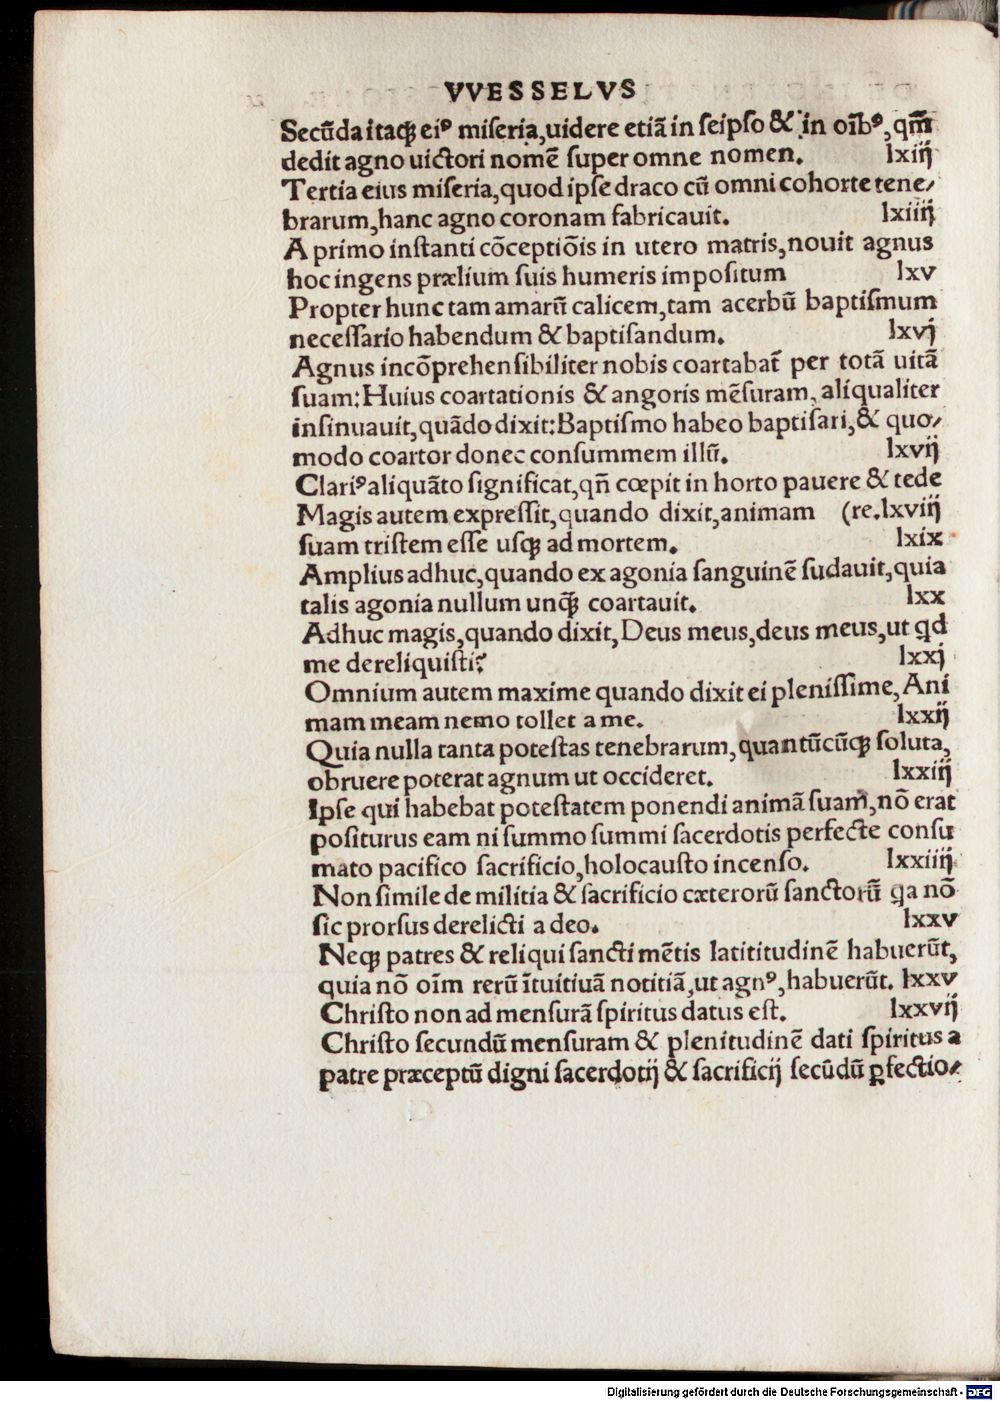 VVESSELVS
Secūda itaqꝫ eiꝰ miſeria,uidere etiā in ſeipſo & in oībꝰ,qm̄
dedit agno uictori nomē ſuper omne nomen. lxiij
Tertia eius miſeria,quod ipſe draco cū omni cohorte tene/
brarum,hanc agno coronam fabricauit. lxiiij
A primo inſtanti cōceptiōis in utero matris,nouit agnus
hoc ingens prælium ſuis humeris impoſitum lxv
Propter hunc tam amarū calicem,tam acerbū baptiſmum
neceſſario habendum & baptiſandum. lxvj
Agnus incōprehenſibiliter nobis coartabat̄ per totā uitā
ſuam:Huius coartationis & angoris mēſuram, aliqualiter
inſinuauit,quādo dixit:Baptiſmo habeo baptiſari,& quo/
modo coartor donec conſummem illū. lxvij
Clariꝰ aliquāto ſignificat,qn̄ cœpit in horto pauere & tede
Magis autem expreſſit,quando dixit,animam (re.lxviij
ſuam triſtem eſſe uſqꝫ ad mortem. lxix
Amplius adhuc,quando ex agonia ſanguinē ſudauit,quia
talis agonia nullum unqꝫ̄ coartauit. lxx
Adhuc magis,quando dixit,Deus meus,deus meus,ut qd
me dereliquiſti? lxxj
Omnium autem maxime quando dixit ei pleniſſime,Ani
mam meam nemo tollet a me. lxxij
Quia nulla tanta poteſtas tenebrarum,quantūcūqꝫ ſoluta,
obruere poterat agnum ut occideret. lxxiij
Ipſe qui habebat poteſtatem ponendi animā ſuam,nō erat
poſiturus eam ni ſummo ſummi ſacerdotis perfecte conſu
mato pacifico ſacrificio,holocauſto incenſo. lxxiiij
Non ſimile de militia & ſacrificio cæterorū ſanctorū qa nō
ſic prorſus derelicti a deo. lxxv
Neqꝫ patres & reliqui ſancti mētis latititudinē habuerūt,
quia nō oīm rerū ītuitiuā notitiā,ut agnꝰ,habuerūt. lxxv
Chriſto non ad menſurā ſpiritus datus eſt. lxxvij
Chriſto ſecundū menſuram & plenitudinē dati ſpiritus a
patre præceptū digni ſacerdotij & ſacrificij ſecūdū ꝑfectio/
Digitalisierung gefördert durch die Deutsche Forschungsgemeinschaft - DFG